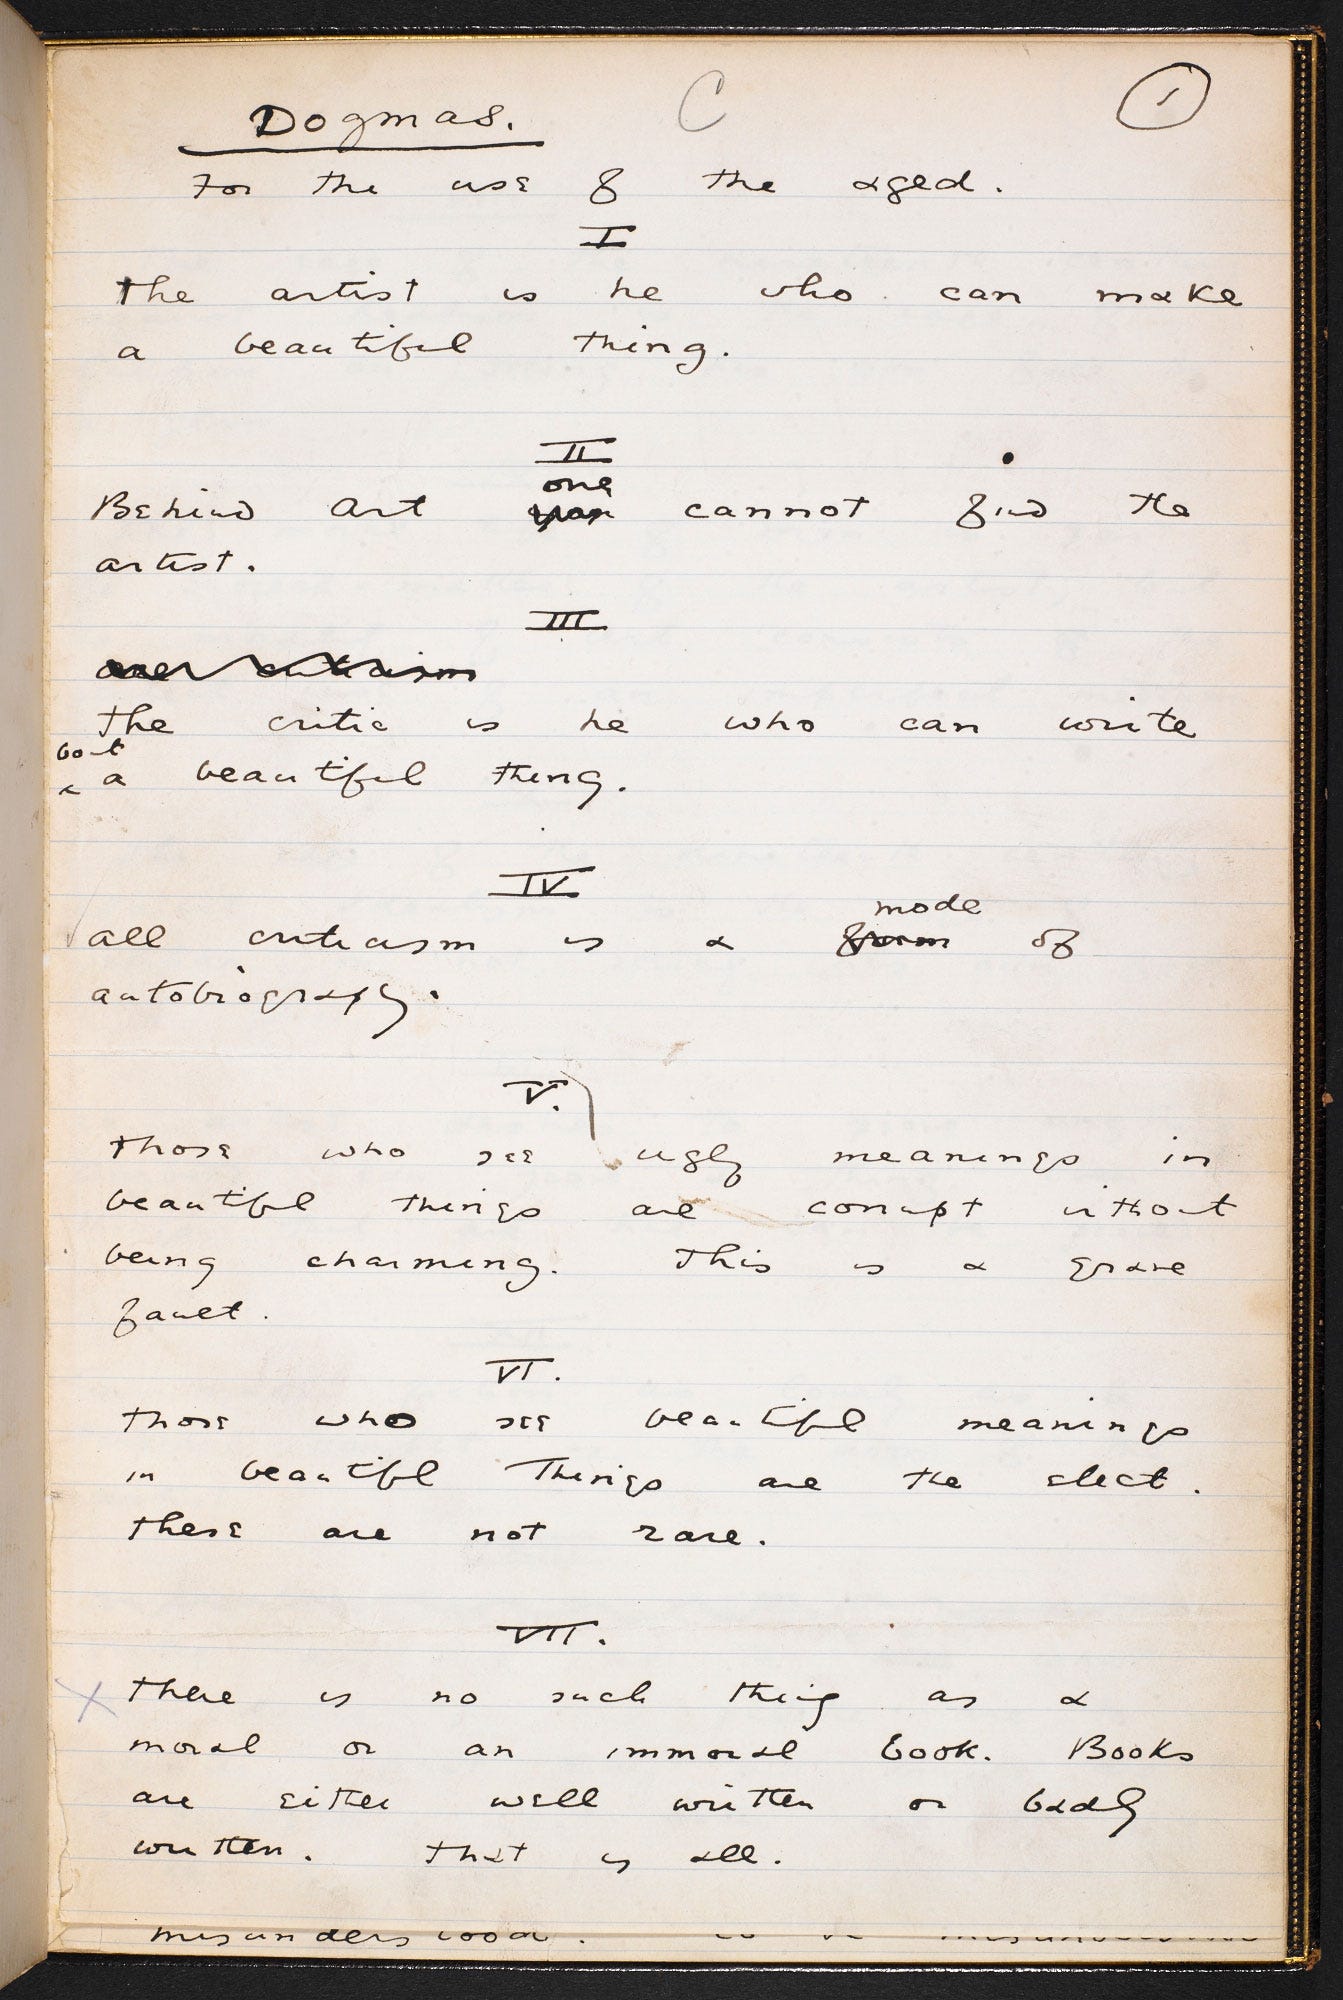 Dogmas. C 1
For the use of the aged.
I
The artist is he who can make
a beautiful thing.
II
one
Behind Art you cannot find the
artist.
III
criticism
The critic is he who can write
bout
a beautiful thing.
IV
mode
All criticism is a form of
autobiography.
V.
Those who see ugly meanings in
beautiful things are corrupt without
being charming. This is a grave
fault.
VI.
Those who see beautiful meanings
in beautiful things are the elect.
These are not rare.
VII.
X There is no such thing as a
moral or an immoral book. Books
are either well written or badly
written. That is all.
misunderstood. to be misunderstood